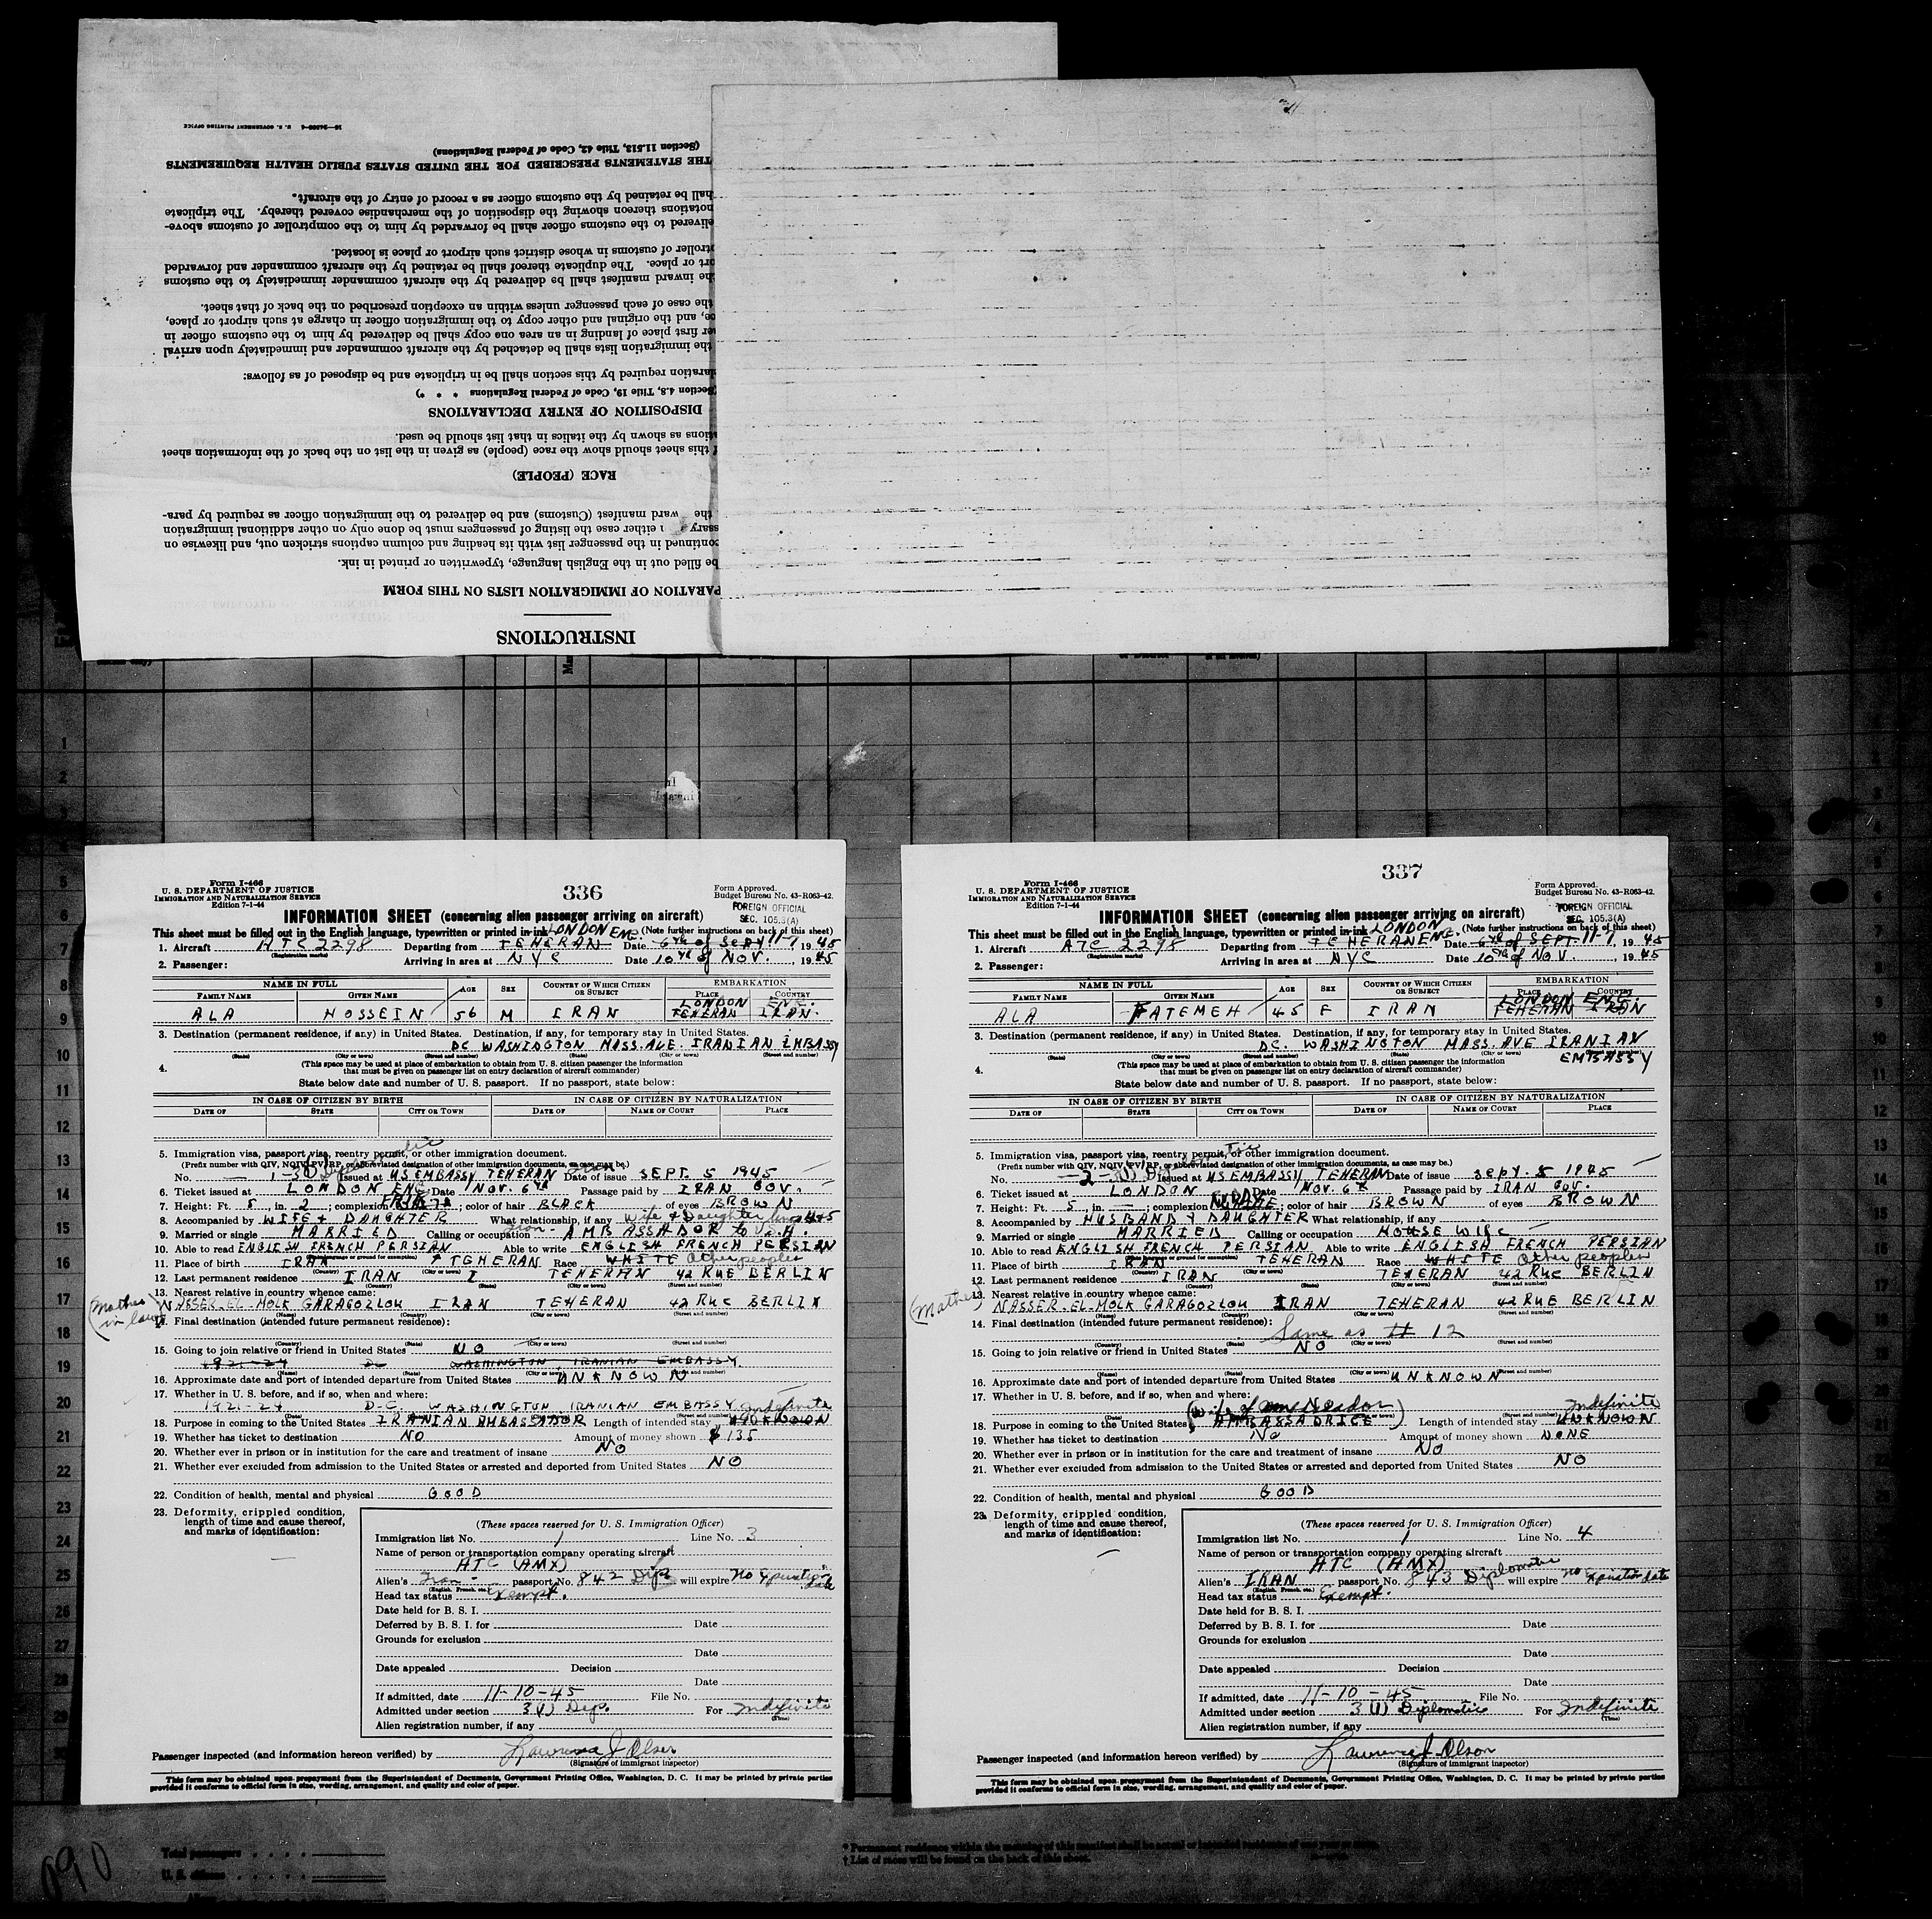 INSTRUCTIONS
PARATION OF IMMIGRATION LISTS ON THIS FORM
be filled out in the English language, typewritten or printed in ink.
continued in the passenger list with its heading and column captions stricken out, and likewise on
either case the listing of passengers must be done only on other additional immigration
the ward manifest (Customs) and be delivered to the immigration officer as required by para-
RACE (PEOPLE)
of this sheet should show the race (people) as given in the list on the back of the information sheet
tions as shown by the italics in that list should be used.
DISPOSITION OF ENTRY DECLARATIONS
(Section 4.8, Title 19, Code of Federal Regulations * * *)
laration required by this section shall be in triplicate and be disposed of as follows:
the immigration lists shall be detached by the aircraft commander and immediately upon arrival
er first place of landing in an area one copy shall be delivered by him to the customs officer in
ce, and the original and other copy to the immigration officer in charge at such airport or place,
the case of each passenger unless within an exception prescribed on the back of that sheet.
the inward manifest shall be delivered by the aircraft commander immediately to the customs
ort or place. The duplicate thereof shall be retained by the aircraft commander and forwarded
troller of customs in whose district such airport or place is located.
elivered to the customs officer shall be forwarded by him to the comptroller of customs above-
notations thereon showing the disposition of the merchandise covered thereby. The triplicate
hall be retained by the customs officer as a record of entry of the aircraft.
THE STATEMENTS PRESCRIBED FOR THE UNITED STATES PUBLIC HEALTH REQUIREMENTS
(Section 11.513, Title 42, Code of Federal Regulations)
U. S. GOVERNMENT PRINTING OFFICE
Form I-466
U. S. DEPARTMENT OF JUSTICE
IMMIGRATION AND NATURALIZATION SERVICE
Edition 7-1-44
336
Form Approved.
Budget Bureau No. 43-R063-42.
FOREIGN OFFICIAL
SEC. 105.3(A)
INFORMATION SHEET (concerning alien passenger arriving on aircraft)
This sheet must be filled out in the English language, typewritten or printed in ink (Note further instructions on back of this sheet)
LONDON ENG.
1. Aircraft ATC 2298 Departing from TEHERAN Date 6th of Sept 11-7, 1945
(Registration marks)
2. Passenger: Arriving in area at NYC Date 10th of NOV., 1945
NAME IN FULL AGE SEX COUNTRY OF WHICH CITIZEN OR SUBJECT EMBARKATION
FAMILY NAME GIVEN NAME PLACE COUNTRY
LONDON ENG.
ALA HOSSEIN 56 M IRAN TEHERAN IRAN.
3. Destination (permanent residence, if any) in United States. Destination, if any, for temporary stay in United States.
DC WASHINGTON MASS. AVE. IRANIAN EMBASSY
(State) (City or town) (Street and number) (State) (City or town) (Street and number)
4. (This space may be used at place of embarkation to obtain from U. S. citizen passenger the information
that must be given on passenger list on entry declaration of aircraft commander)
State below date and number of U. S. passport. If no passport, state below:
IN CASE OF CITIZEN BY BIRTH IN CASE OF CITIZEN BY NATURALIZATION
DATE OF STATE CITY OR TOWN DATE OF NAME OF COURT PLACE
5. Immigration visa, passport visa, reentry permit, or other immigration document.
(Prefix number with QIV, NQIV, PV, RP, or abbreviated designation of other immigration documents, as case may be.)
No. 1-3(1) Diplomatic Issued at US EMBASSY TEHERAN Iran Date of issue SEPT. 5 1945
6. Ticket issued at LONDON ENG Date NOV. 6th Passage paid by IRAN GOV.
7. Height: Ft. 5, in. 2; complexion FAIR; color of hair BLACK of eyes BROWN
8. Accompanied by WIFE & DAUGHTER What relationship, if any Wife & Daughter
9. Married or single MARRIED Calling or occupation Iran - AMBASSADOR to U.S.A.
10. Able to read ENGLISH FRENCH PERSIAN Able to write ENGLISH FRENCH PERSIAN
11. Place of birth IRAN TEHERAN Race WHITE Other peoples
12. Last permanent residence IRAN TEHERAN 42 RUE BERLIN
13. Nearest relative in country whence came:
(Mother in law) NASSER-EL-MOLK GARAGOZLOU IRAN TEHERAN 42 RUE BERLIN
14. Final destination (intended future permanent residence):
(Country) (State) (City or town) (Street and number)
15. Going to join relative or friend in United States NO
1921-24 DC WASHINGTON, IRANIAN EMBASSY
16. Approximate date and port of intended departure from United States UNKNOWN
17. Whether in U. S. before, and if so, when and where:
1921-24 D.C. WASHINGTON IRANIAN EMBASSY
18. Purpose in coming to the United States IRANIAN AMBASSADOR Length of intended stay UNKNOWN Indefinite
19. Whether has ticket to destination NO Amount of money shown $135
20. Whether ever in prison or in institution for the care and treatment of insane NO
21. Whether ever excluded from admission to the United States or arrested and deported from United States NO
22. Condition of health, mental and physical GOOD
23. Deformity, crippled condition, length of time and cause thereof, and marks of identification:
(These spaces reserved for U. S. Immigration Officer)
Immigration list No. 1 Line No. 3
Name of person or transportation company operating aircraft
ATC (AMX)
Alien's Iran passport No. 842 Dip will expire No Expiration date
(English, French, etc.)
Head tax status Exempt.
Date held for B. S. I.
Deferred by B. S. I. for Date
Grounds for exclusion
Date
Date appealed Decision
Date
If admitted, date 11-10-45 File No.
Admitted under section 3(1) Dip. For Indefinite
(Time)
Alien registration number, if any
Passenger inspected (and information hereon verified) by Lawrence J. Olson
(Signature of immigrant inspector)
This form may be obtained upon prepayment from the Superintendent of Documents, Government Printing Office, Washington, D. C. It may be printed by private parties
provided it conforms to official form in size, wording, arrangement, and quality and color of paper.
Form I-466
U. S. DEPARTMENT OF JUSTICE
IMMIGRATION AND NATURALIZATION SERVICE
Edition 7-1-44
337
Form Approved.
Budget Bureau No. 43-R063-42.
FOREIGN OFFICIAL
SEC. 105.3(A)
INFORMATION SHEET (concerning alien passenger arriving on aircraft)
This sheet must be filled out in the English language, typewritten or printed in ink (Note further instructions on back of this sheet)
LONDON ENG.
1. Aircraft ATC 2298 Departing from TEHERAN Date 6th of SEPT. 11-7, 1945
(Registration marks)
2. Passenger: Arriving in area at NYC Date 10th of NOV., 1945
NAME IN FULL AGE SEX COUNTRY OF WHICH CITIZEN OR SUBJECT EMBARKATION
FAMILY NAME GIVEN NAME PLACE COUNTRY
LONDON ENG.
ALA FATEMEH 45 F IRAN TEHERAN IRAN
3. Destination (permanent residence, if any) in United States. Destination, if any, for temporary stay in United States.
DC. WASHINGTON MASS. AVE IRANIAN EMBASSY
(State) (City or town) (Street and number) (State) (City or town)
4. (This space may be used at place of embarkation to obtain from U. S. citizen passenger the information
that must be given on passenger list on entry declaration of aircraft commander)
State below date and number of U. S. passport. If no passport, state below:
IN CASE OF CITIZEN BY BIRTH IN CASE OF CITIZEN BY NATURALIZATION
DATE OF STATE CITY OR TOWN DATE OF NAME OF COURT PLACE
5. Immigration visa, passport visa, reentry permit, or other immigration document.
(Prefix number with QIV, NQIV, PV, RP, or abbreviated designation of other immigration documents, as case may be.)
No. 2-3(1) Diplomatic Issued at US EMBASSY TEHERAN Date of issue Sept. 5 1945
6. Ticket issued at LONDON Date NOV. 6th Passage paid by IRAN GOV.
7. Height: Ft. 5, in. —; complexion; color of hair BROWN of eyes BROWN
8. Accompanied by HUSBAND & DAUGHTER What relationship, if any
9. Married or single MARRIED Calling or occupation HOUSE WIFE
10. Able to read ENGLISH FRENCH PERSIAN Able to write ENGLISH FRENCH PERSIAN
11. Place of birth IRAN TEHERAN Race WHITE Other peoples
12. Last permanent residence IRAN TEHERAN 42 RUE BERLIN
13. Nearest relative in country whence came:
(Mother) NASSER-EL-MOLK GARAGOZLOU IRAN TEHERAN 42 RUE BERLIN
14. Final destination (intended future permanent residence):
Same as # 12
15. Going to join relative or friend in United States NO
16. Approximate date and port of intended departure from United States UNKNOWN
17. Whether in U. S. before, and if so, when and where:
(Wife of Ambassador)
18. Purpose in coming to the United States AMBASSADRICE Length of intended stay UNKNOWN Indefinite
19. Whether has ticket to destination No Amount of money shown NONE
20. Whether ever in prison or in institution for the care and treatment of insane NO
21. Whether ever excluded from admission to the United States or arrested and deported from United States NO
22. Condition of health, mental and physical GOOD
23. Deformity, crippled condition, length of time and cause thereof, and marks of identification:
(These spaces reserved for U. S. Immigration Officer)
Immigration list No. 1 Line No. 4
Name of person or transportation company operating aircraft
ATC (AMX)
Alien's IRAN passport No. 843 Diplomatic will expire no Expiration date
(English, French, etc.)
Head tax status Exempt.
Date held for B. S. I.
Deferred by B. S. I. for Date
Grounds for exclusion
Date
Date appealed Decision
Date
If admitted, date 11-10-45 File No.
Admitted under section 3(1) Diplomatic For Indefinite
(Time)
Alien registration number, if any
Passenger inspected (and information hereon verified) by Lawrence J. Olson
(Signature of immigrant inspector)
This form may be obtained upon prepayment from the Superintendent of Documents, Government Printing Office, Washington, D. C. It may be printed by private parties
provided it conforms to official form in size, wording, arrangement, and quality and color of paper.
Total passengers
U. S. citizens
Aliens
* Permanent residence within the meaning of this manifest shall be actual or intended residence of one year or more.
† List of races will be found on the back of this sheet.
090